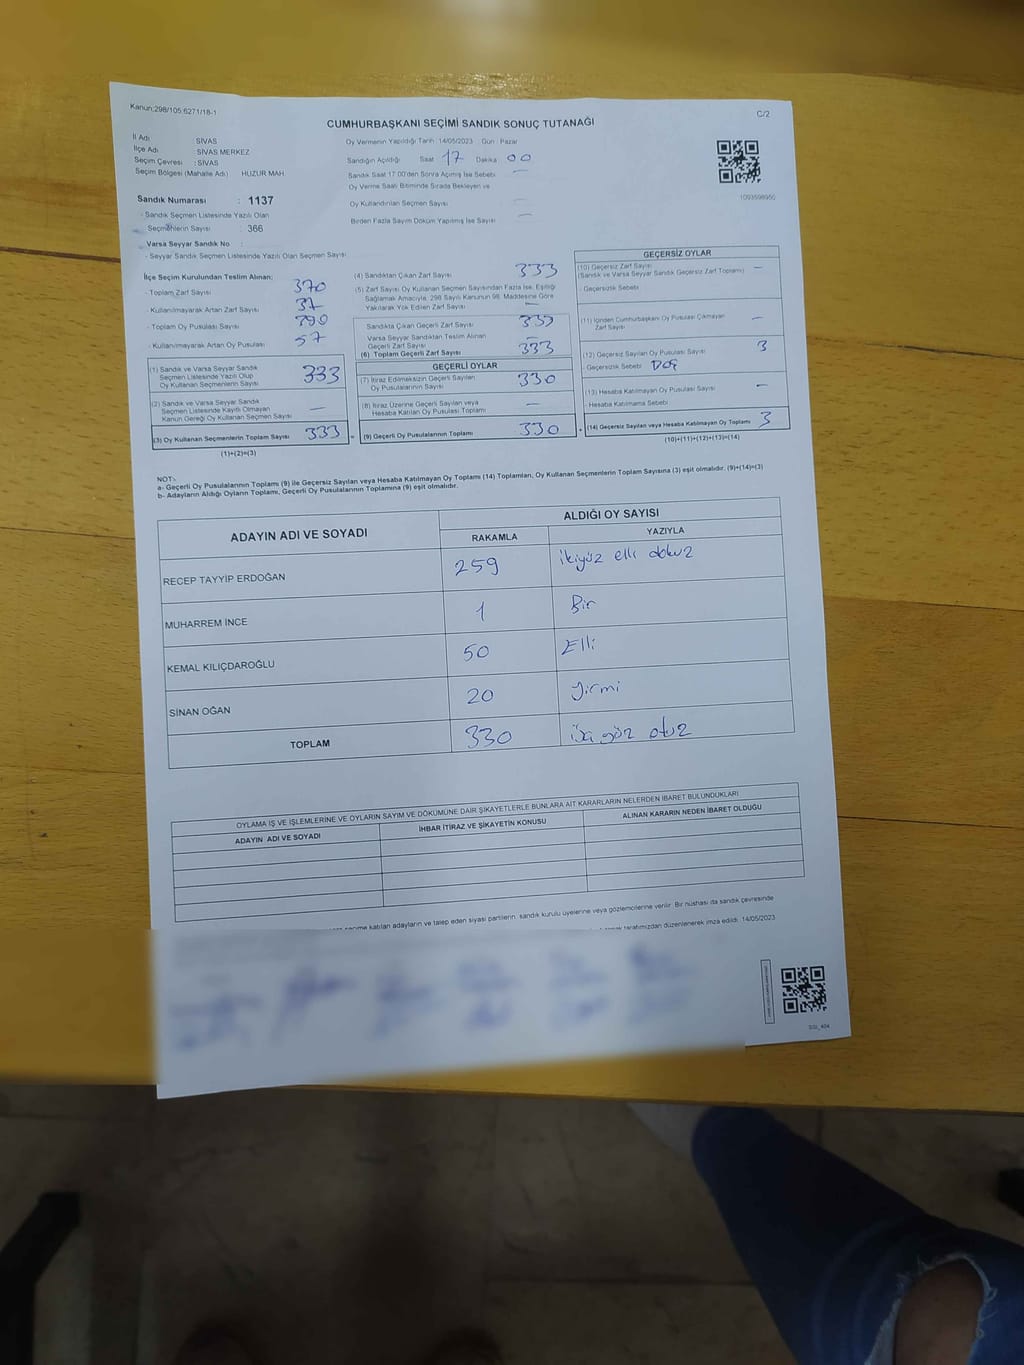 Kanun:298/105,6271/18-1
C/2
CUMHURBAŞKANI SEÇİMİ SANDIK SONUÇ TUTANAĞI
İl Adı SİVAS
İlçe Adı SİVAS MERKEZ
Seçim Çevresi : SİVAS
Seçim Bölgesi (Mahalle Adı) HUZUR MAH
Sandık Numarası : 1137
- Sandık Seçmen Listesinde Yazılı Olan
Seçmenlerin Sayısı : 366
Varsa Seyyar Sandık No :
- Seyyar Sandık Seçmen Listesinde Yazılı Olan Seçmen Sayısı
Oy Vermenin Yapıldığı Tarih :14/05/2023 Gün : Pazar
Sandığın Açıldığı Saat 17 Dakika 00
Sandık Saat 17:00'den Sonra Açılmış İse Sebebi —
Oy Verme Saati Bitiminde Sırada Bekleyen ve
Oy Kullandırılan Seçmen Sayısı —
Birden Fazla Sayım Döküm Yapılmış İse Sayısı —
1093598950
İlçe Seçim Kurulundan Teslim Alınan;
- Toplam Zarf Sayısı 370
- Kullanılmayarak Artan Zarf Sayısı 37
- Toplam Oy Pusulası Sayısı
- Kullanılmayarak Artan Oy Pusulası 57
(1) Sandık ve Varsa Seyyar Sandık
Seçmen Listesinde Yazılı Olup
Oy Kullanan Seçmenlerin Sayısı 333
(2) Sandık ve Varsa Seyyar Sandık
Seçmen Listesinde Kayıtlı Olmayan
Kanun Gereği Oy Kullanan Seçmen Sayısı —
(3) Oy Kullanan Seçmenlerin Toplam Sayısı 333
(1)+(2)=(3)
(4) Sandıktan Çıkan Zarf Sayısı 333
(5) Zarf Sayısı Oy Kullanan Seçmen Sayısından Fazla İse, Eşitliği
Sağlamak Amacıyla, 298 Sayılı Kanunun 98. Maddesine Göre
Yakılarak Yok Edilen Zarf Sayısı —
Sandıkta Çıkan Geçerli Zarf Sayısı 333
Varsa Seyyar Sandıktan Teslim Alınan
Geçerli Zarf Sayısı —
(6) Toplam Geçerli Zarf Sayısı 333
GEÇERLİ OYLAR
(7) İtiraz Edilmeksizin Geçerli Sayılan
Oy Pusulalarının Sayısı 330
(8) İtiraz Üzerine Geçerli Sayılan veya
Hesaba Katılan Oy Pusulası Toplamı —
(9) Geçerli Oy Pusulalarının Toplamı 330
GEÇERSİZ OYLAR
(10) Geçersiz Zarf Sayısı —
(Sandık ve Varsa Seyyar Sandık Geçersiz Zarf Toplamı)
Geçersizlik Sebebi
(11) İçinden Cumhurbaşkanı Oy Pusulası Çıkmayan
Zarf Sayısı —
(12) Geçersiz Sayılan Oy Pusulası Sayısı 3
Geçersizlik Sebebi
(13) Hesaba Katılmayan Oy Pusulası Sayısı —
- Hesaba Katılmama Sebebi
(14) Geçersiz Sayılan veya Hesaba Katılmayan Oy Toplamı 3
(10)+(11)+(12)+(13)=(14)
NOT:-
a- Geçerli Oy Pusulalarının Toplamı (9) ile Geçersiz Sayılan veya Hesaba Katılmayan Oy Toplamı (14) Toplamları, Oy Kullanan Seçmenlerin Toplam Sayısına (3) eşit olmalıdır. (9)+(14)=(3)
b- Adayların Aldığı Oyların Toplamı, Geçerli Oy Pusulalarının Toplamına (9) eşit olmalıdır.
ADAYIN ADI VE SOYADI ALDIĞI OY SAYISI
RAKAMLA YAZIYLA
RECEP TAYYİP ERDOĞAN 259 ikiyüz elli dokuz
MUHARREM İNCE 1 Bir
KEMAL KILIÇDAROĞLU 50 Elli
SİNAN OĞAN 20 Yirmi
TOPLAM 330 yüz otuz
OYLAMA İŞ VE İŞLEMLERİNE VE OYLARIN SAYIM VE DÖKÜMÜNE DAİR ŞİKAYETLERLE BUNLARA AİT KARARLARIN NELERDEN İBARET BULUNDUKLARI
ADAYIN ADI VE SOYADI İHBAR İTİRAZ VE ŞİKAYETİN KONUSU ALINAN KARARIN NEDEN İBARET OLDUĞU
seçime katılan adayların ve talep eden siyasi partilerin, sandık kurulu üyelerine veya gözlemcilerine verilir. Bir nüshası da sandık çevresinde
tarafımızdan düzenlenerek imza edildi. 14/05/2023